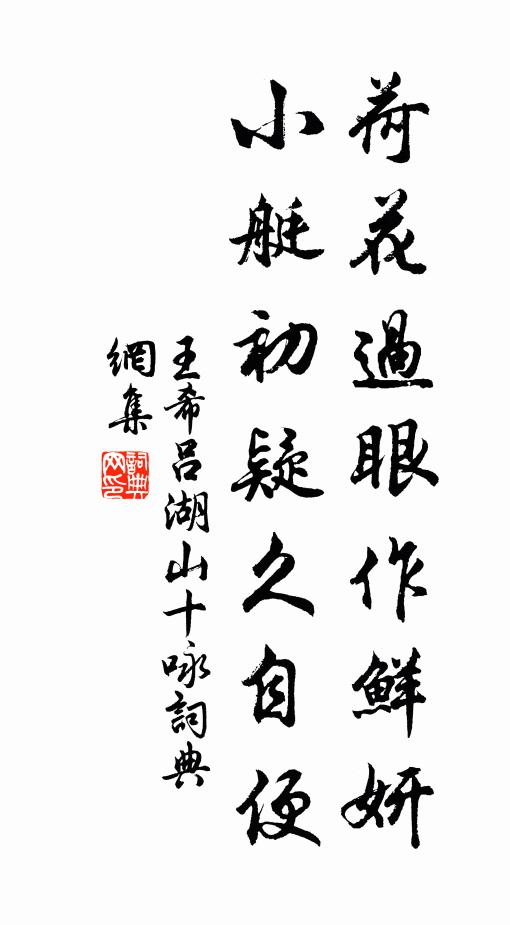 荷花過眼作鮮妍
小艇初疑久自便
王希呂湖山十咏詞典
網集
詞典网印